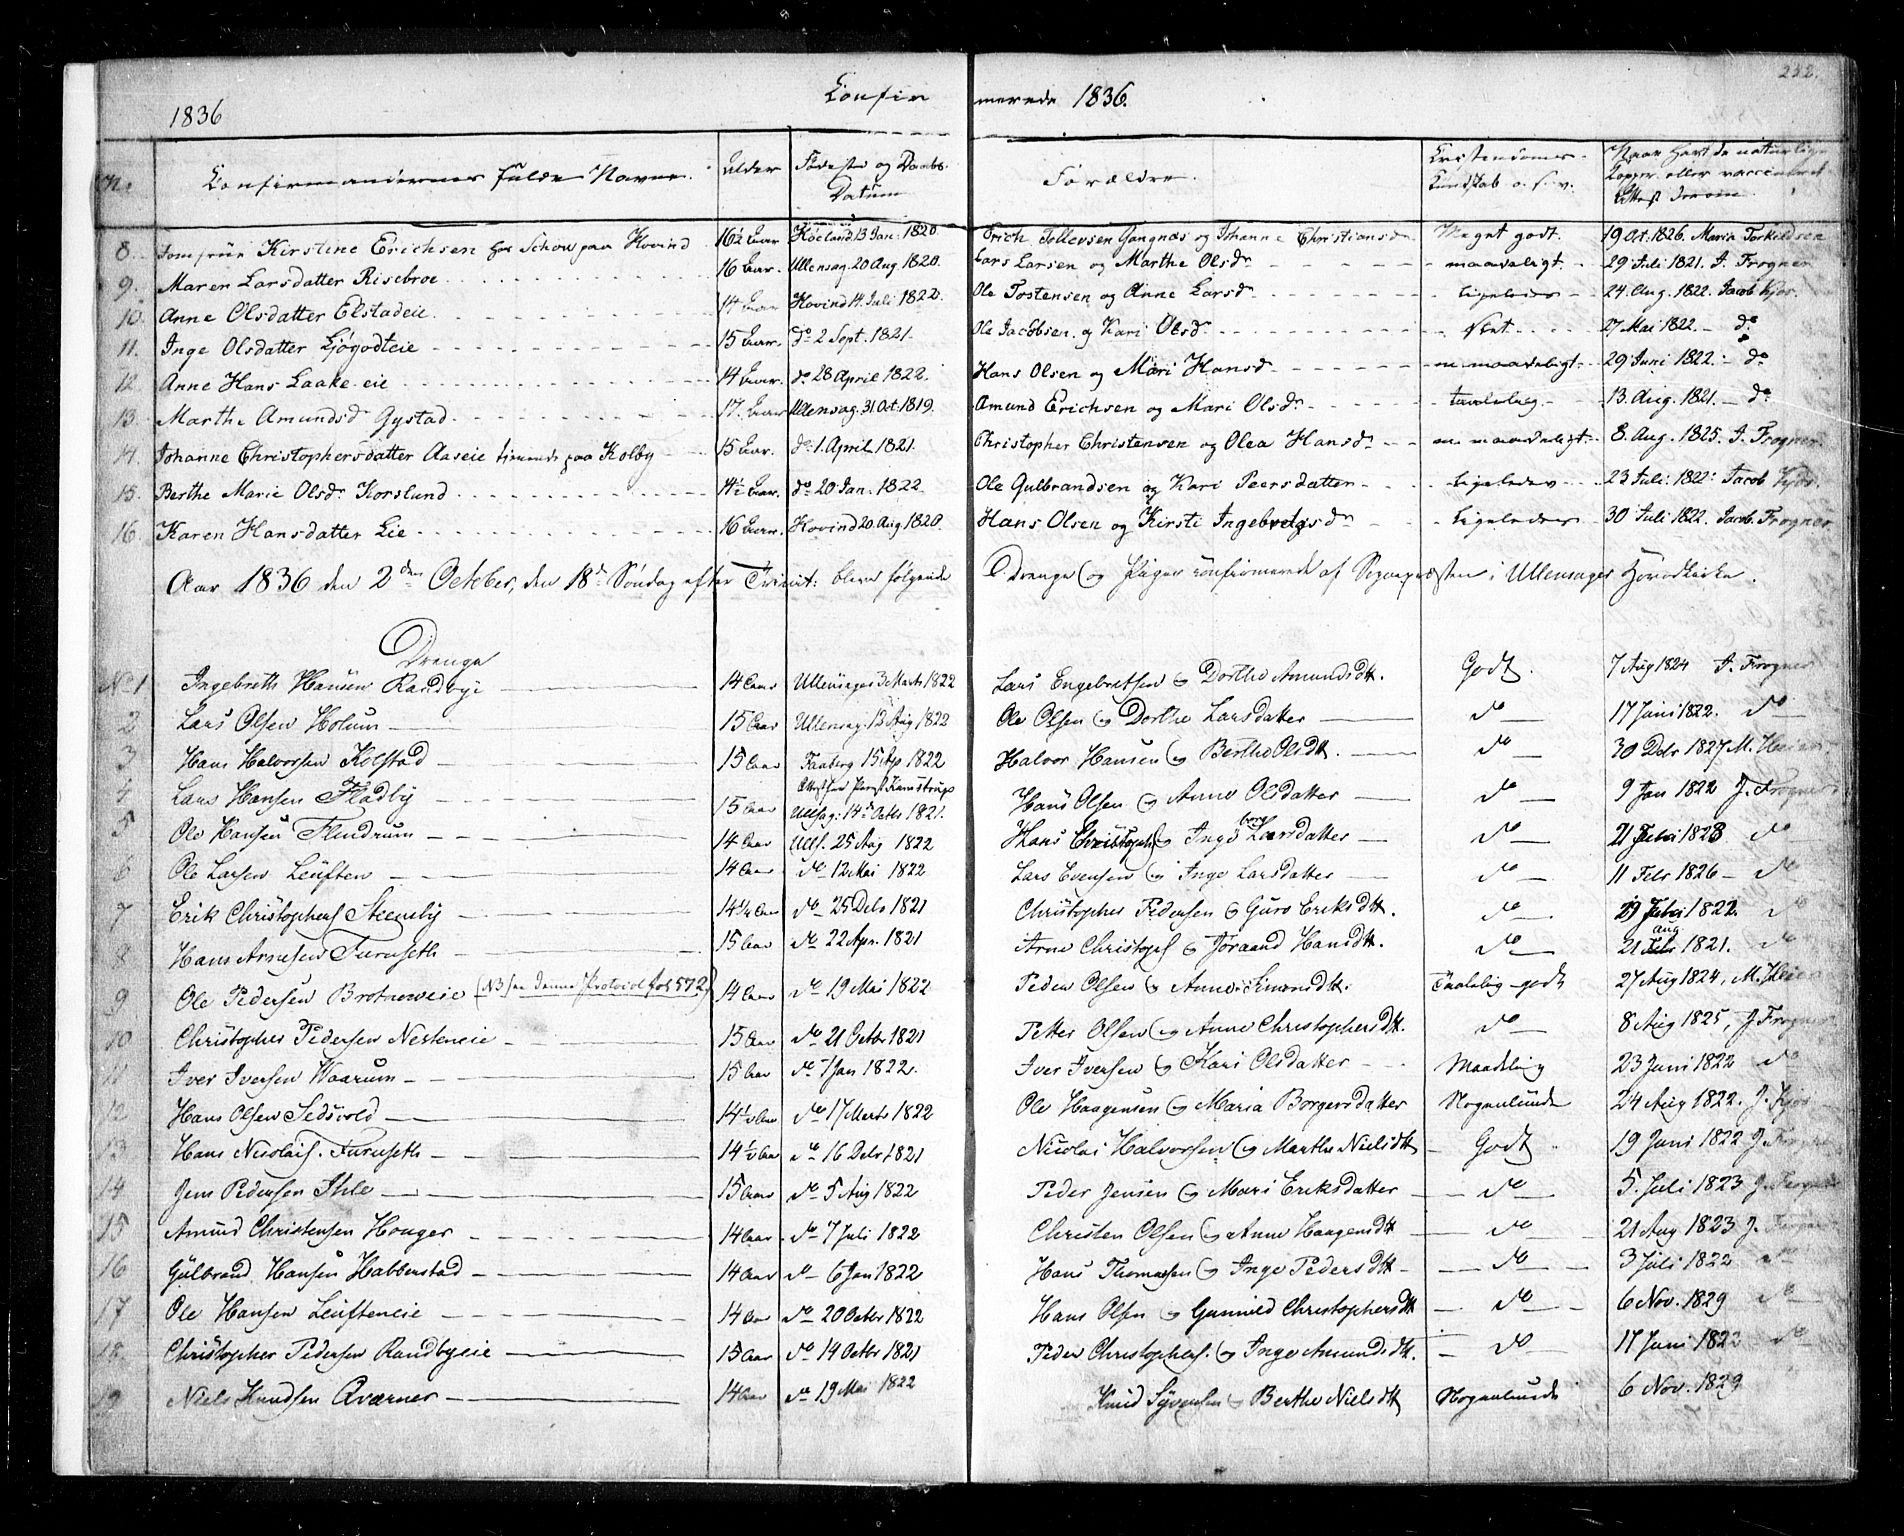 232.
1836 Confir merede 1836.
No. Confirmandernes fulde Navne. Alder Fødested og Daabs Datum Forældre. Christendoms Kundskab o. s. v. Naar havt de naturlige Kopper eller vaccineret Attest derom
8. Jomfrue Kirstine Erichsen hos Schou paa Hovind 16½ Aar Høeland 13 Jan: 1820 Erich Tollevsen Gangnæs og Johanne Christiansdr Meget godt. 19 Oct. 1826. Maria Torkildsen
9. Maren Larsdatter Risebroe 16 Aar. Ullensag. 20 Aug. 1820. Lars Larsen og Marthe Olsdr maadeligt 29 Juli 1821. J. Frogner
10. Anne Olsdatter Elstadeie 14 Aar Hovind 14. Juli 1822. Ole Tostensen og Anne Larsdr ligeledes 24. Aug. 1822. Jacob Kjos.
11. Inge Olsdatter Ljøgodteie 15 Aar. do 2 Sept. 1821. Ole Jacobsen og Kari Olsdr slet 27 Mai 1822. do
12. Anne Hans Laake eie 14 Aar. do 28 April 1822. Hans Olsen og Mari Hansdr m maadeligt 29 Juni 1822. do
13. Marthe Amundsd Gystad 17. Aar Ullensag. 31 Oct. 1819. Amund Erichsen og Mari Olsdr taalelig 13. Aug. 1821. do
14. Johanne Christophersdatter Aaseie tienende paa Kolby 15 Aar. do 1. April 1821. Christopher Christensen og Olea Hansdr m maadeligt 8. Aug. 1825. J. Frogner
15. Berthe Marie Olsdr Korslund 14½ Aar. do 20 Jan. 1822. Ole Gulbrandsen og Kari Peersdatter ligeledes 23 Juli 1822: Jacob Kjos.
16. Karen Hansdatter Lie 16 Aar. Hovind 20. Aug 1820. Hans Olsen og Kirsti Ingebretsdr ligeledes 30 Juli 1822. Jacob. Frogner
Aar 1836 den 2den October, den 18de Søndag efter Trinit: bleve følgende Drenge og Piger confirmerede af Sognepræsten i Ullensager Hovedkirke.
Drenge
No 1 Ingebreth Hansen Randbye 14 Aar Ullensager 3 Marts 1822 Lars Engebretsen og Dorthe Amundsdtt. Godt. 7 Aug 1824 J. Frogner
2 Lars Olsen Holum 15 Aar Ullensag. 13 Aug 1822 Ole Olsen og Dorthe Larsdatter do 17 Juni 1822. do
3 Hans Halvorsen Kolstad 15 Aar Faaberg 15 Ap 1822 Halvor Hansen og Berthe Olsdtt. do 30 Debr 1827 M. Heier
Attest fra Provst Kamstrup
4 Lars Hansen Fladby 15 Aar Ullsag: 14de Octbr 1821. Hans Olsen og Anne Olsdatter do 9 Jan 1822 J. Frogner
5 Ole Hansen Flindrum 14 Aar Ulls. 25 Aug 1822 Hans Christoph og Ingeborg Larsdatter do 21 1823 do
6 Ole Larsen Leuften 14 Aar do 12 Mai 1822 Lars Evensen og Inge Larsdatter do 11 Febr 1826 do
7 Erik Christophers Steenby 14½ Aar do 25 Debr 1821 Christopher Pedersen og Guro Eriksdtt. do 29 1822. do
8 Hans Arnesen Furuseth 15 Aar do 22 Apr. 1821 Arne Christophs og Joraand Hansdtt. do 21 Aug 1821. do
9 Ole Pedersen Brotneveie (NB see denne Protocol fol 572) 14 Aar do 19 Mai 1822 Peder Olsen og Anne Simensdtt. Taalelig godt 27 Aug 1824, M. Heier
10 Christopher Pedersen Nesteneie 15 Aar do 21 Octbr 1821 Petter Olsen og Anne Christophersdtt. do 8 Aug 1825, J Frogner
11 Iver Iversen Waarum 15 Aar do 7 Jan 1822. Iver Iversen og Kari Olsdatter Maadelig 23 Juni 1822 do
12 Hans Olsen Sedsvold 14½ Aar do 17 Marts 1822 Ole Haagensen og Maria Borgersdatter Nogenlunde 24 Aug 1822. J. Kjos
13 Hans Nicolais. Furuseth 14½ Aar do 16 Debr 1821 Nicolai Halvorsen og Marthe Nielsdtt Godt 19 Juni 1822 J. Frogner
14 Jens Pedersen Ihle 15 Aar do 5 Aug 1822 Peder Jensen og Mari Eriksdatter do 5. Juli 1823 J. Frogner
15 Amund Christensen Houger 14 Aar do 7 Juli 1822 Christen Olsen og Anne Haagensdtt do 21 Aug 1823 J. Frogner
16 Gulbrand Hansen Habberstad 14 Aar do 6 Jan 1822 Hans Thomesen og Inge Pedersdtt do 3 Juli 1822 do
17 Ole Hansen Leufteneie 14 Aar do 20 Octbr 1822 Hans Olsen og Gunnild Christophersdtt do 6 Nov. 1829 do
18 Christopher Pedersen Randbyeie 15 Aar do 14 Octbr 1821 Peder Christophers. og Inge Amundsdtt. do 17 Juni 1822 do
19 Niels Knudsen Qværner 14 Aar do 19 Mai 1822 Knud Syversen og Berthe Nielsdtt Nogenlunde 6 Nov. 1829